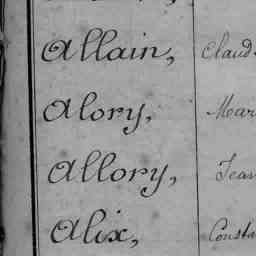 Allain, Claud
Alory, Mar
Allory, Jean
Alix, Consta